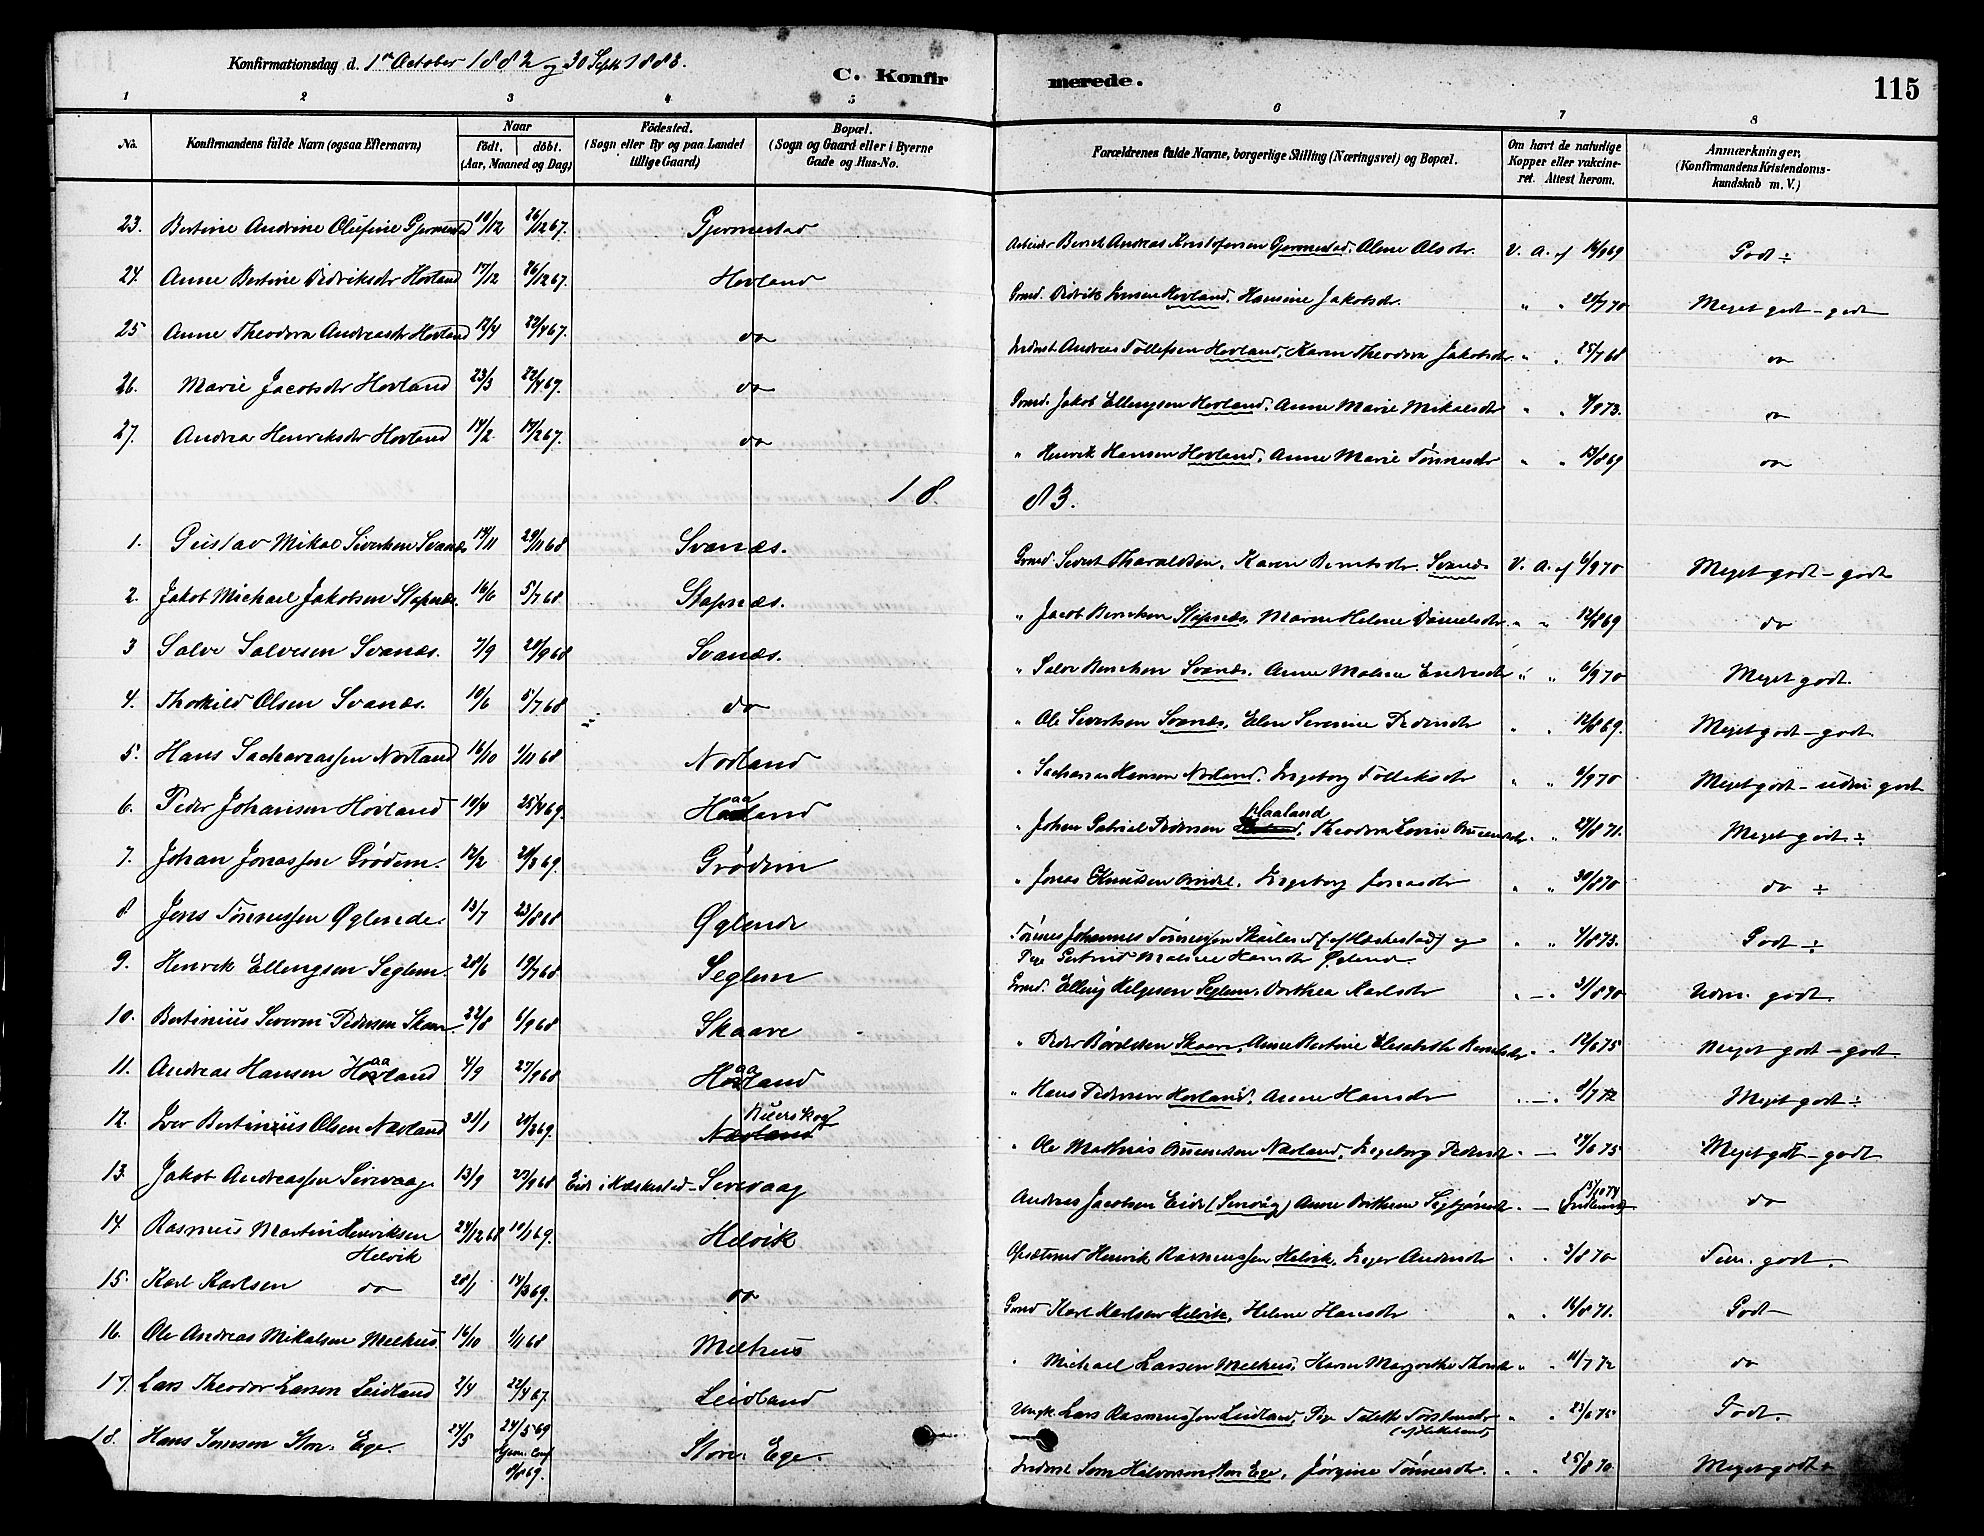 Konfirmationsdag d. 1ste October 1882 og 30 Septb 1883.
C. Konfirmerede.
115
1 2 3 4 5 6 7 8
No. Konfirmandens fulde Navn (ogsaa Efternavn) Naar født. døbt. (Aar, Maaned og Dag) Fødested. (Sogn eller By og paa Landet tillige Gaard) Bopæl. (Sogn og Gaard eller i Byerne Gade og Hus-No. Forældrenes fulde Navne, borgerlige Stilling (Næringsvei) og Bopæl. Om havt de naturlige Kopper eller vakcineret. Attest herom. Anmærkninger, (Konfirmandens Kristendomskundskab m. V.)
23. Bertine Andrine Olufine Gjermestad 10/12 26/12 67. Gjermestad Arbeider Bernt Andreas Kristofersen Gjermestad, Alene Alsdtr. V. A. af 16/9 69 Godt ÷
24. Anne Bertine Didriksdtr Hovland 17/12 26/12 67. Hovland Grmd. Didrik Iversen Hovland, Hansine Jakobsdtr. " " 20/7 70 Meget godt - godt
25 Anne Theodora Andreasdtr Hovland 12/4 22/4 67. do Inderst Andreas Tollefsen Hovland, Karen Theodora Jakobsdtr " " 25/7 68 do
26. Marie Jacobsdtr Hovland 23/3 22/4 67. do Grmd. Jakob Ellingsen Hovland, Anne Marie Mikalsdtr " " 4/9 73. do
27. Andrea Henriksdtr Hovland 14/2. 17/2 67. do " Henrik Hansen Hovland, Anne Marie Tønnesdtr " " 13/8 69 do
18 83.
1. Gustav Mikal Sivertsen Svanæs 14/11 29/11 68 Svanæs. Grmd. Sivert Tharaldsen, Karen Berntsdtr. Svanæs V. A. af 6/9 70 Meget godt - godt
2. Jakob Michael Jakobsen Stapnæs. 16/6 5/7 68. Stapnæs. " Jacob Berntsen Stapnæs, Maren Helene Danielsdtr " " 12/8 69 do
3 Salve Salvesen Svanæs. 7/9 20/9 68 Svanæs. " Salve Berntsen Svanæs, Anne Malene Endresdtr " " 6/9 70 Meget godt.
4. Thorkild Olsen Svanæs. 10/6 5/7 68. do " Ole Sivertsen Svanæs, Elen Severine Pedersdtr " " 12/8 69. Meget godt - godt.
5. Hans Sachariassen Nodland 16/10 1/11 68 Nodland " Sacharias Hansen Nodland, Ingeborg Tolleksdtr " " 6/9 70 Meget godt - udm: godt
6. Peder Johansen Hovland 10/4 25/4 69. Haaland " Johan Gabriel Pedersen Haaland, Theodora Lovise " " 29/8 71. Meget godt ÷
7. Johan Jonassen Grødem. 12/2 29/3 69. Grødem " Jonas Knudsen Jonasdtr " " 30/8 70 do ÷
8 Jens Tønnessen Øglende. 13/7 23/8 68 Øglende Tønnes Johannes Tønnessen (af Heskestad) og
Pige Gertrud Malene Hansdtr Øglend " " 4/8 73. Godt ÷
9. Henrik Ellingsen Seglem. 28/6 19/7 68 Seglem Grmd. Elling Helgesen Seglem, Dorthea Karlsdtr " - " 31/8 70 Udm. godt.
10. Bertinius Severin Pedersen Skaare. 22/8 6/9 68 Skaare " Peder Skaare, Anne Bertine Elisabeth Berntsdtr " " 19/6 75 Meget godt - godt
11. Andreas Hansen Haaland 4/9 27/9 68 Haaland " Hans Pedersen Hovland, Anne Hansdtr " - " 8/7 72 Meget godt ÷
12. Iver Bertinius Olsen Nævland 31/1 29/3 69. Nævland Ruerskog " Ole Mathias Nævland, Ingeborg Pedersdtr " - 29/6 75 Meget godt - godt
13. Jakob Andreassen Sirevaag 13/9 27/9 68 Eide i Heskestad - Sirevaag Andreas Jacobsen Eide (Sirevåg) Anne " - 15/10 74 do
14. Rasmus Martin Henriksen Helvik 24/12 68 10/1 69. Helvik Opsidder Henrik Rasmussen Helvik, Inger Andersdtr " " 3/8 70 Tem. godt.
15. Karl Karlsen do 28/1 14/3 69. do Grmd Karl Karlsen Helvik, Helene Hansdtr " " 16/8 71. Godt -
16. Ole Andreas Mikalsen Melhus. 16/10 1/11 68 Melhus " Michael Larsen Melhus, Karen Margrethe " " 11/7 72 do
17. Lars Theodor Larsen Leidland 2/4 22/4 67. Leidland Ungk. Lars Rasmussen Leidland, Pige Torstensdtr " " 23/6 75 Godt.
18. Hans Sørensen Stor. Ege. 24/5 24/5 69
Hjem. Conf 8/8 69. Store Ege. Inderst Søren Halvorsen Stor Ege, Jørgine Tønnesdtr. " " 25/8 70 Meget godt ÷